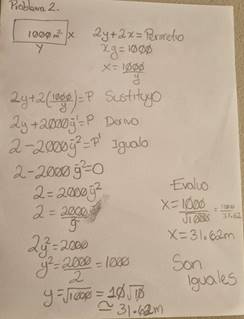 Problema 2.
1000m² x
y
2y+2x=Perimetro
xy=1000
x=1000/y
2y+2(1000/y)=P Sustituyo
2y+2000y⁻¹=P Derivo
2-2000y⁻²=P' Igualo
2-2000y⁻²=0
2=2000y⁻²
2=2000/y²
2y²=2000
y²=2000/2=1000
y=√1000=10√10
≅31.62m
Evaluo
x=1000/√1000=1000/31.62
x=31.62m
Son
iguales